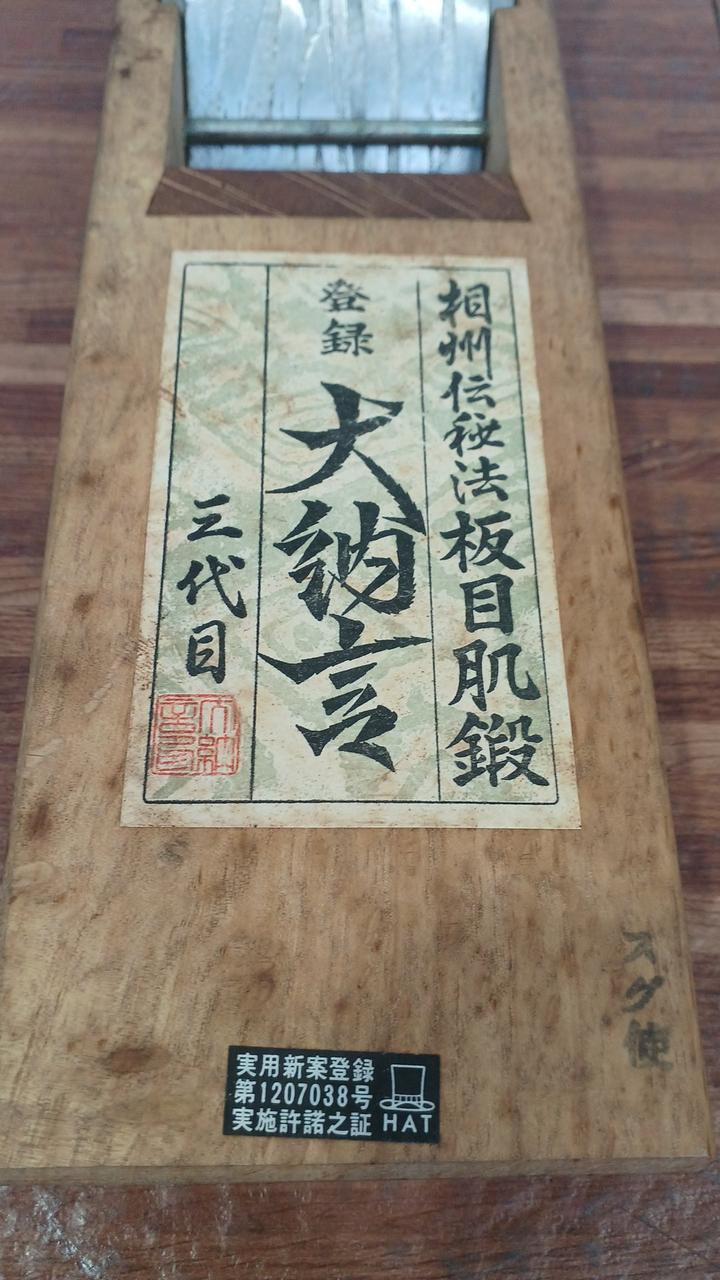 相州伝秘法板目肌鍛
登録
大納言
三代目
大納言
スグ使
実用新案登録
第1207038号
実施許諾之証
HAT